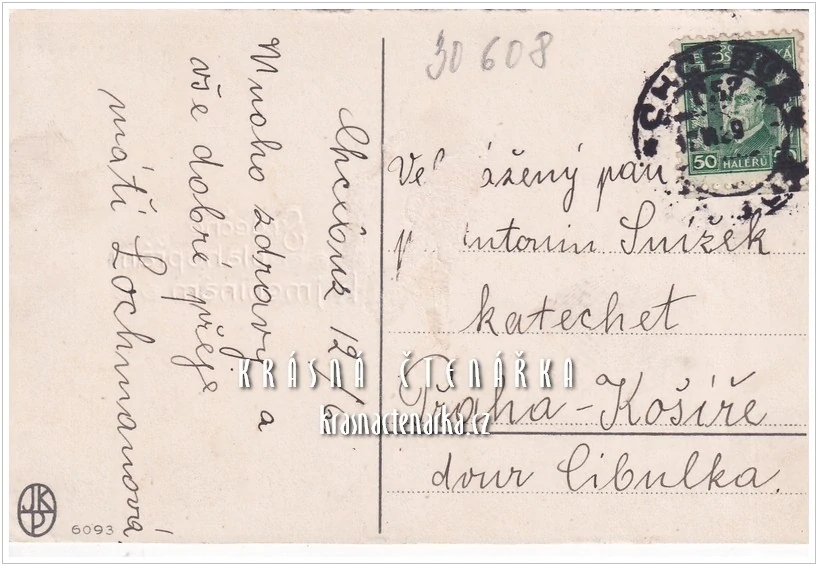 Chcebuz 12/6
Mnoho zdravy a
vše dobré přeje
máti Lochmanová.
30608
Vel ážený pan
p ntonín Snížek
katechet
Praha-Košíře
dvur Cibulka.
50 HALÉŘŮ
KRÁSNÁ ČTENÁŘKA
krasnactenarka.cz
JKP
6093